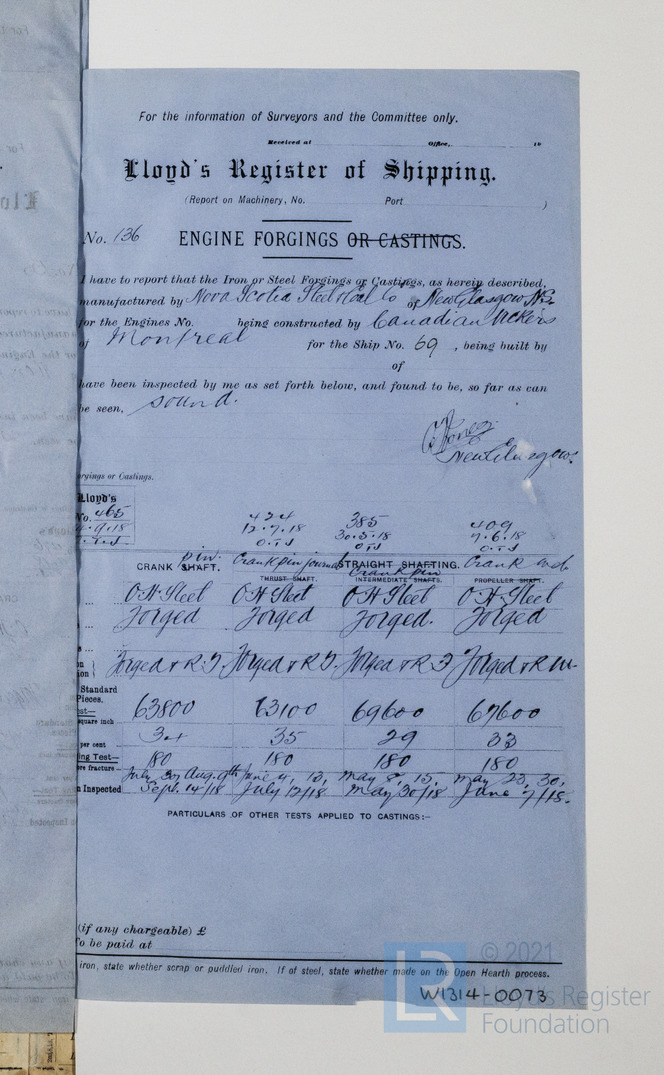 For the information of Surveyors and the Committee only.
Received at Office, 19
Lloyd's Register of Shipping.
(Report on Machinery, No. Port )
No. 136 ENGINE FORGINGS OR CASTINGS.
I have to report that the Iron or Steel Forgings or Castings, as herein described,
manufactured by Nova Scotia Steel & Coal Co of New Glasgow N.S.
for the Engines No. being constructed by Canadian Vickers
of Montreal for the Ship No. 69 , being built by
of
have been inspected by me as set forth below, and found to be, so far as can
be seen, sound.
Jones
New Glasgow.
orgings or Castings.
Lloyd's
No. 465 424 385 409
4.9.18 12.7.18 30.5.18 7.6.18
O.T.J O.T.J O.T.J O.T.J
CRANK SHAFT. pin. Crank pin journal STRAIGHT SHAFTING. Crank web
THRUST SHAFT. INTERMEDIATE SHAFTS. Crank pin PROPELLER SHAFT.
O.H. Steel O H Steel O H Steel O H Steel
Forged Forged Forged. Forged
Forged & R. Forged & R Forged & R Forged & R
Standard
Pieces.
63800 69600 67600
square inch
34 35 29 33
per cent
ing Test— 180 180 180 180
ore fracture—
July Aug. 9th June 4, 13, May 8, 13, May 23, 30,
n Inspected Sept. 14/18 July 12/18 May 30/18 June 7/18.
PARTICULARS OF OTHER TESTS APPLIED TO CASTINGS:—
(if any chargeable) £
To be paid at
iron, state whether scrap or puddled iron. If of steel, state whether made on the Open Hearth process.
W1314-0073
© 2021
LR Lloyd's Register
Foundation